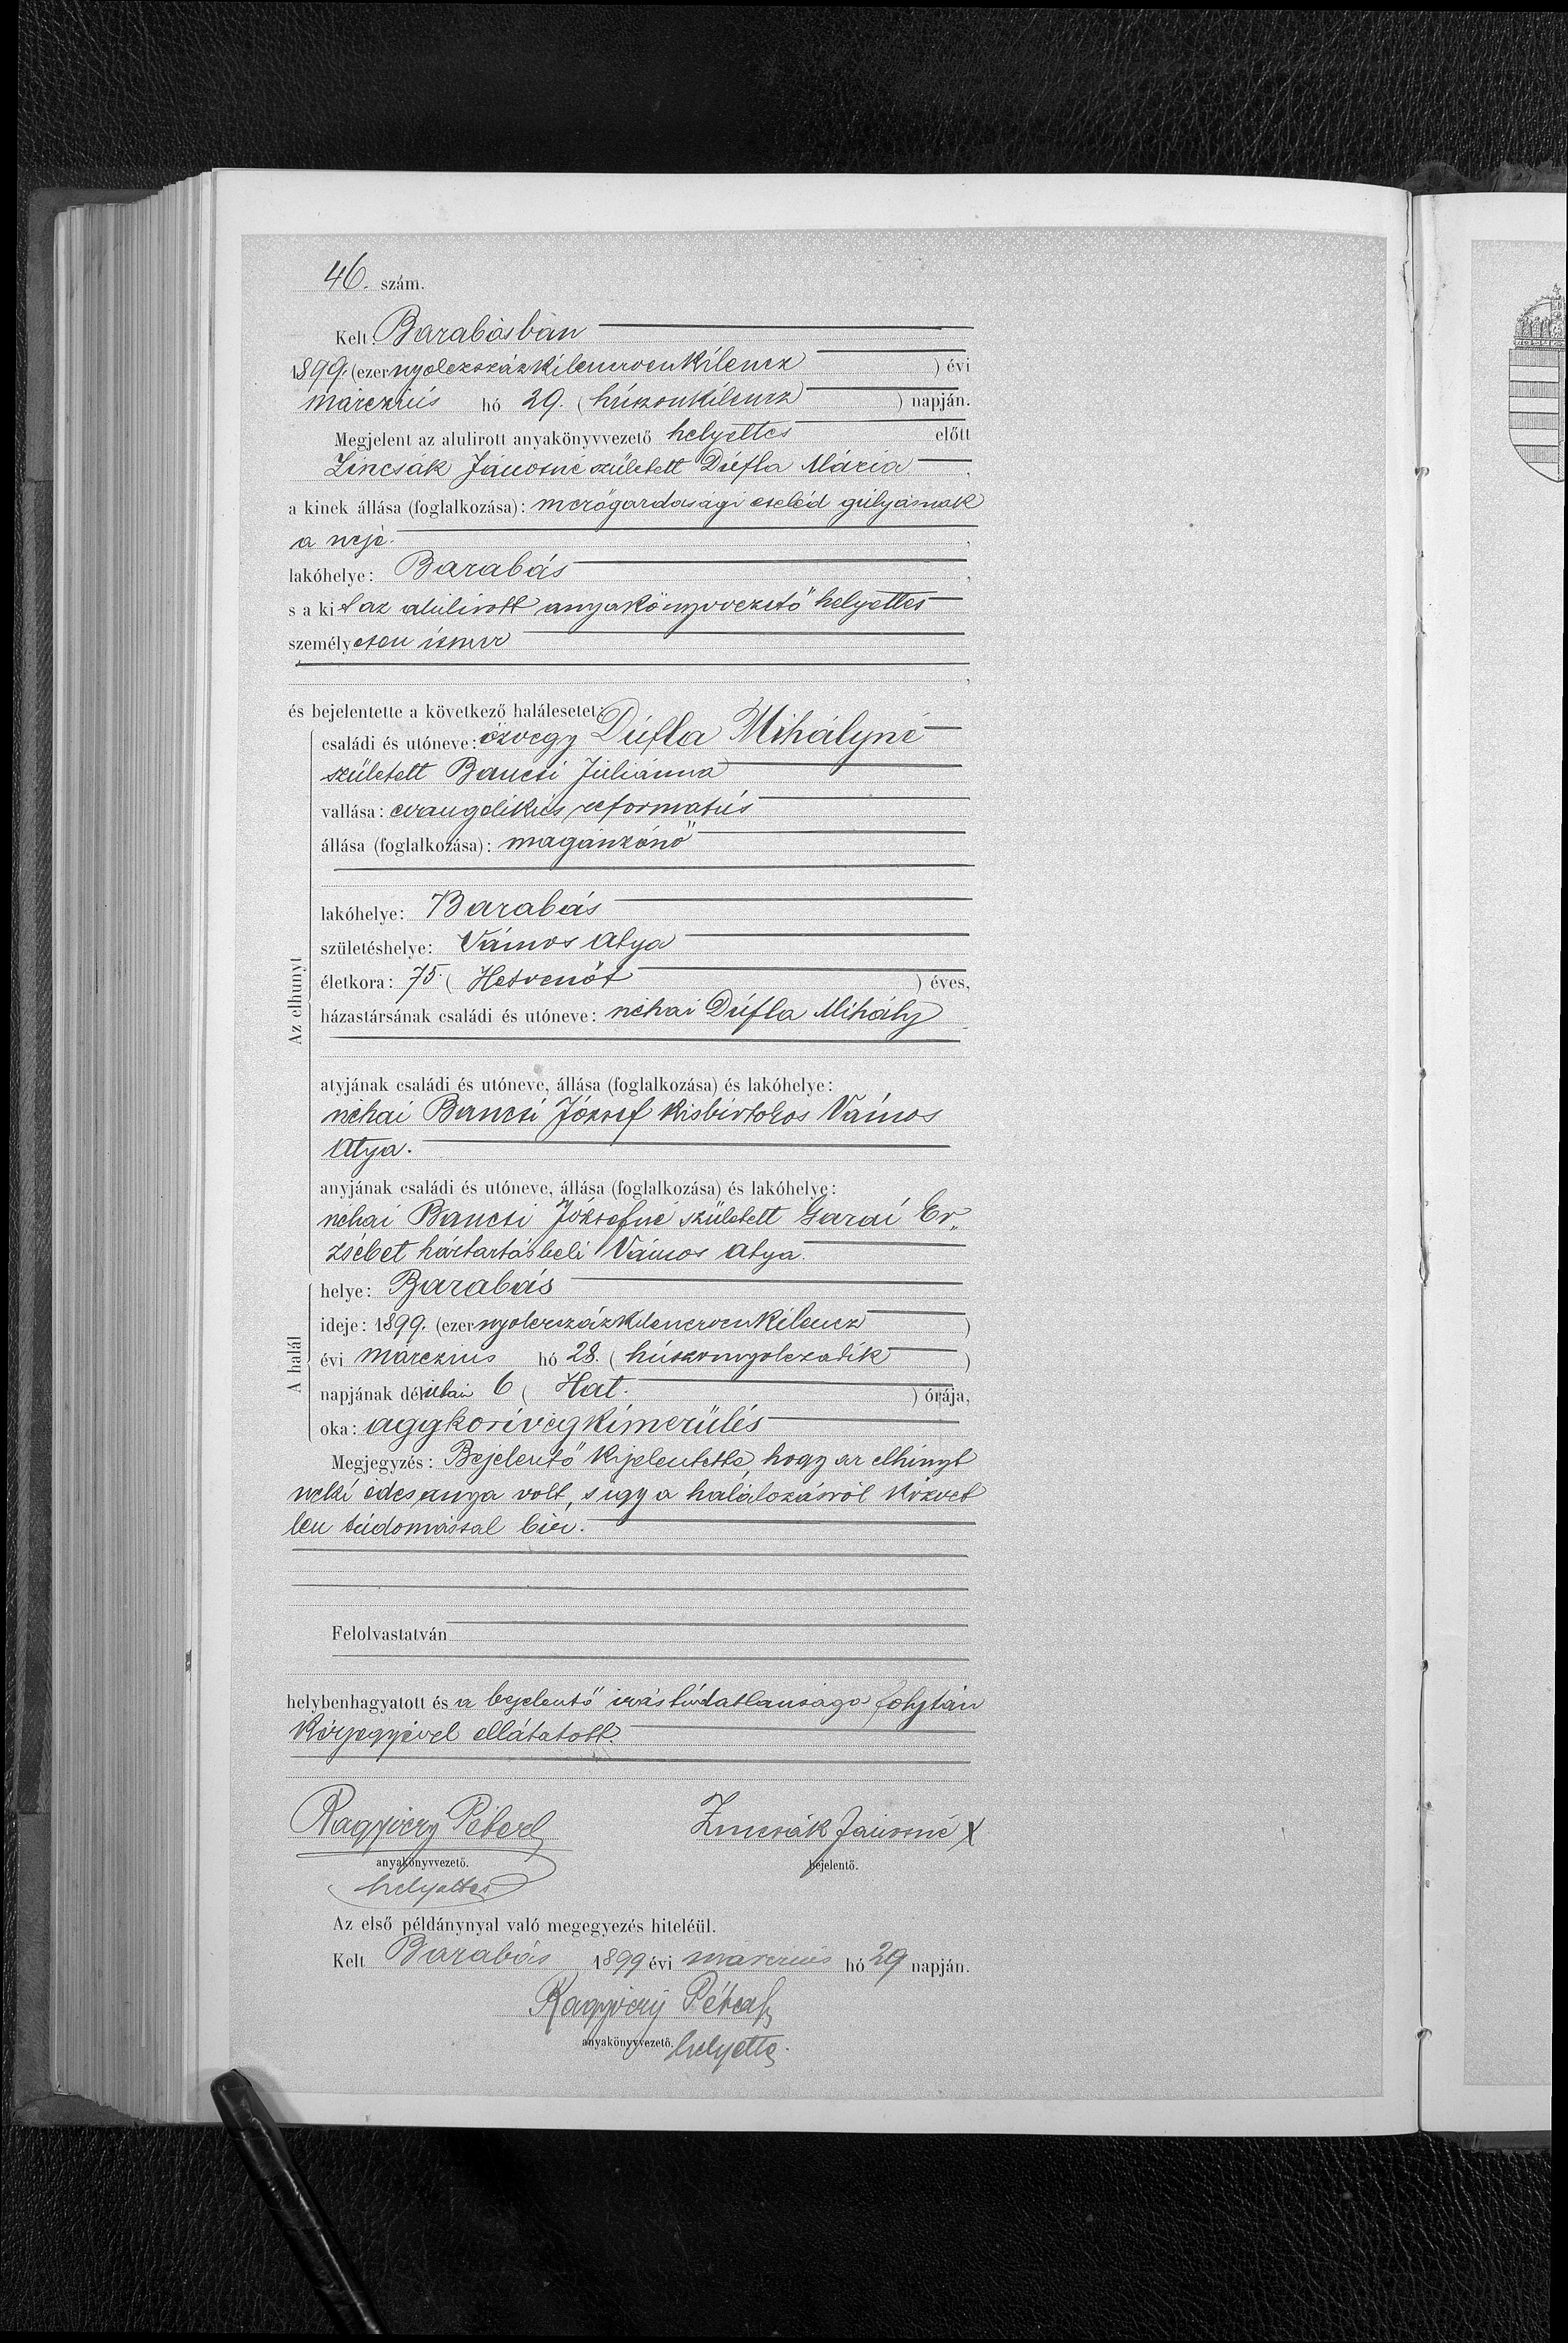 46. szám.
Kelt Barabásban
1899. (ezernyolczszázkilenczvenkilencz) évi
márczius hó 29. (húszonkilencz) napján.
Megjelent az alulirott anyakönyvvezető helyettes előtt
Zincsák Jánosné született Dufla Mária,
a kinek állása (foglalkozása): mezőgazdasági cseléd gulyásnak
a neje.,
lakóhelye: Barabás,
s a kit az alulirott anyakönyvvezető helyettes
személyesen ismer
,
és bejelentette a következő halálesetet:
Az elhunyt
családi és utóneve: özvegy Dufla Mihályné
született Bancsi Juliánna
vallása: evangelikus reformatus
állása (foglalkozása): magánzónő
lakóhelye: Barabás
születéshelye: Vámos Atya
életkora: 75. (Hetvenöt) éves,
házastársának családi és utóneve: néhai Dufla Mihály
atyjának családi és utóneve, állása (foglalkozása) és lakóhelye:
néhai Bancsi József kisbirtokos Vámos
Atya.
anyjának családi és utóneve, állása (foglalkozása) és lakóhelye:
néhai Bancsi Józsefné született Garai Er„
zsébet háztartásbeli Vámos Atya.
A halál
helye: Barabás
ideje: 1899. (ezernyolczszázkilenczvenkilencz)
évi márczius hó 28. (húszonnyolczadik)
napjának délutáni 6 (Hat.) órája,
oka: aggkori végkimerülés
Megjegyzés: Bejelentő kijelentette, hogy az elhúnyt
neki édesanyja volt, s igy a halálozásról közvet
len tudomással bir.
Felolvastatván
helybenhagyatott és a bejelentő irástudatlansága folytán
kézjegyével ellátatott.
Ragyóczy Péter
Zincsák Jánosné X
anyakönyvvezető.
bejelentő.
helyettes
Az első példánynyal való megegyezés hiteléül.
Kelt Barabás 1899 évi márczius hó 29 napján.
Ragyóczy Péter
anyakönyvvezető. helyettes